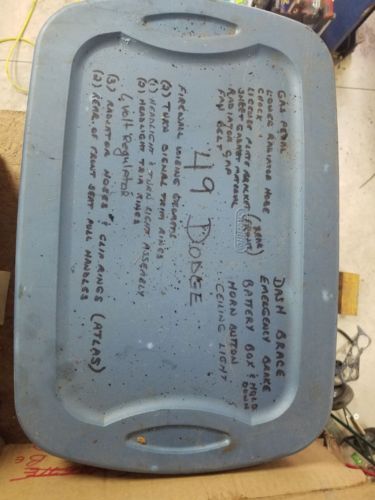 GAS PEDAL
LOWER RADIATOR HOSE
CHOCK
LICENSE PLATE BRACKET (REAR
FRONT)
SHEET GASKET MATERIAL
RADIATOR CAP
FAN BELT
DASH BRACE
EMERGENCY BRAKE
BATTERY BOX & HOLD DOWN
HORN BUTTON
CEILING LIGHT
49 DODGE
FIREWALL WIRING
(2) TURN SIGNAL TRIM RINGS
(1) HEADLIGHT & TURN LIGHT ASSEMBLY
(2) HEADLIGHT TRIM RINGS
6 Volt Regulator
(3) RADIATOR HOSES & CLIP RINGS (ATLAS)
(2) REAR OF FRONT SEAT PULL HANDLES